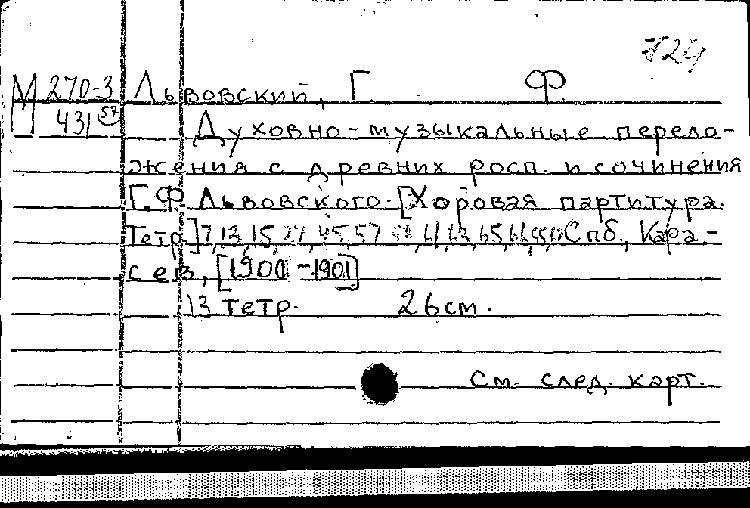 М 270-3 Львовский, Г. Ф.
431 Духовно-музыкальные перело-
жения с древних росп. и сочинения
Г.Ф. Львовского. [Хоровая партитура.
Тетр.] 7, 13, 15, 45, 57 65 Спб., Кара-
сев, [1900-1901]
13 тетр. 26см.
См. след. карт.